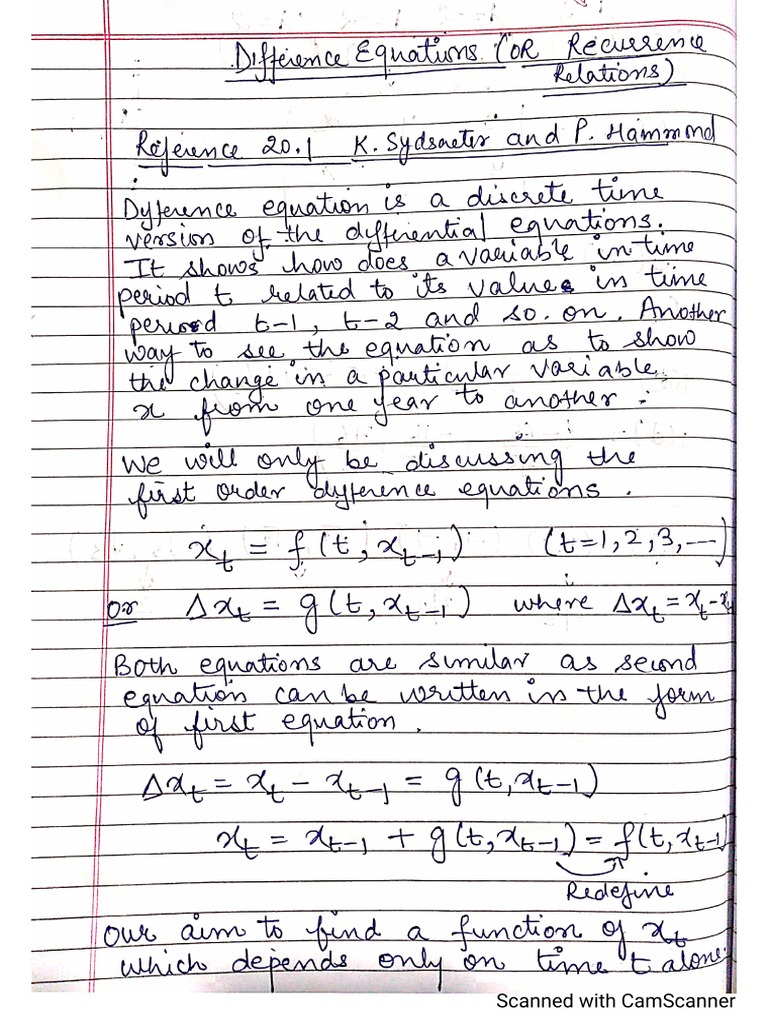 Difference Equations (OR Recurrence
Relations)
Reference 20.1 K. Sydsaeter and P. Hammond
Dyference equation is a discrete time
version of the differential equations.
It shows how does a variable in time
period t related to its values in time
period t-1, t-2 and so on. Another
way to see the equation as to show
the change in a particular variable
x from one year to another :
We will only be discussing the
first order dyference equations.
x_t = f(t, x_{t-1}) (t=1,2,3,---)
or Δx_t = g(t, x_{t-1}) where Δx_t = x_t - x_t
Both equations are similar as second
equation can be written in the form
of first equation.
Δx_t = x_t - x_{t-1} = g(t, x_{t-1})
x_t = x_{t-1} + g(t, x_{t-1}) = f(t, x_{t-1})
Redefine
Our aim to find a function of x_t
which depends only on time t alone.
Scanned with CamScanner